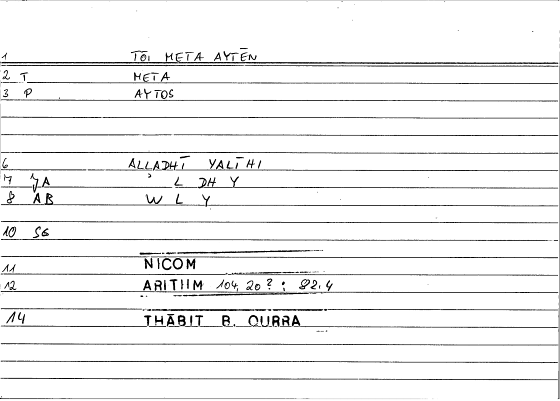 1 TŌI META AYTĒN
2 T META
3 P AYTOS
6 ALLADHĪ YALĪHI
7 JA ' L DH Y
8 AB W L Y
10 SG
11 NICOM
12 ARITIIM 104, 20 ? : 82.4
14 THĀBIT B. QURRA